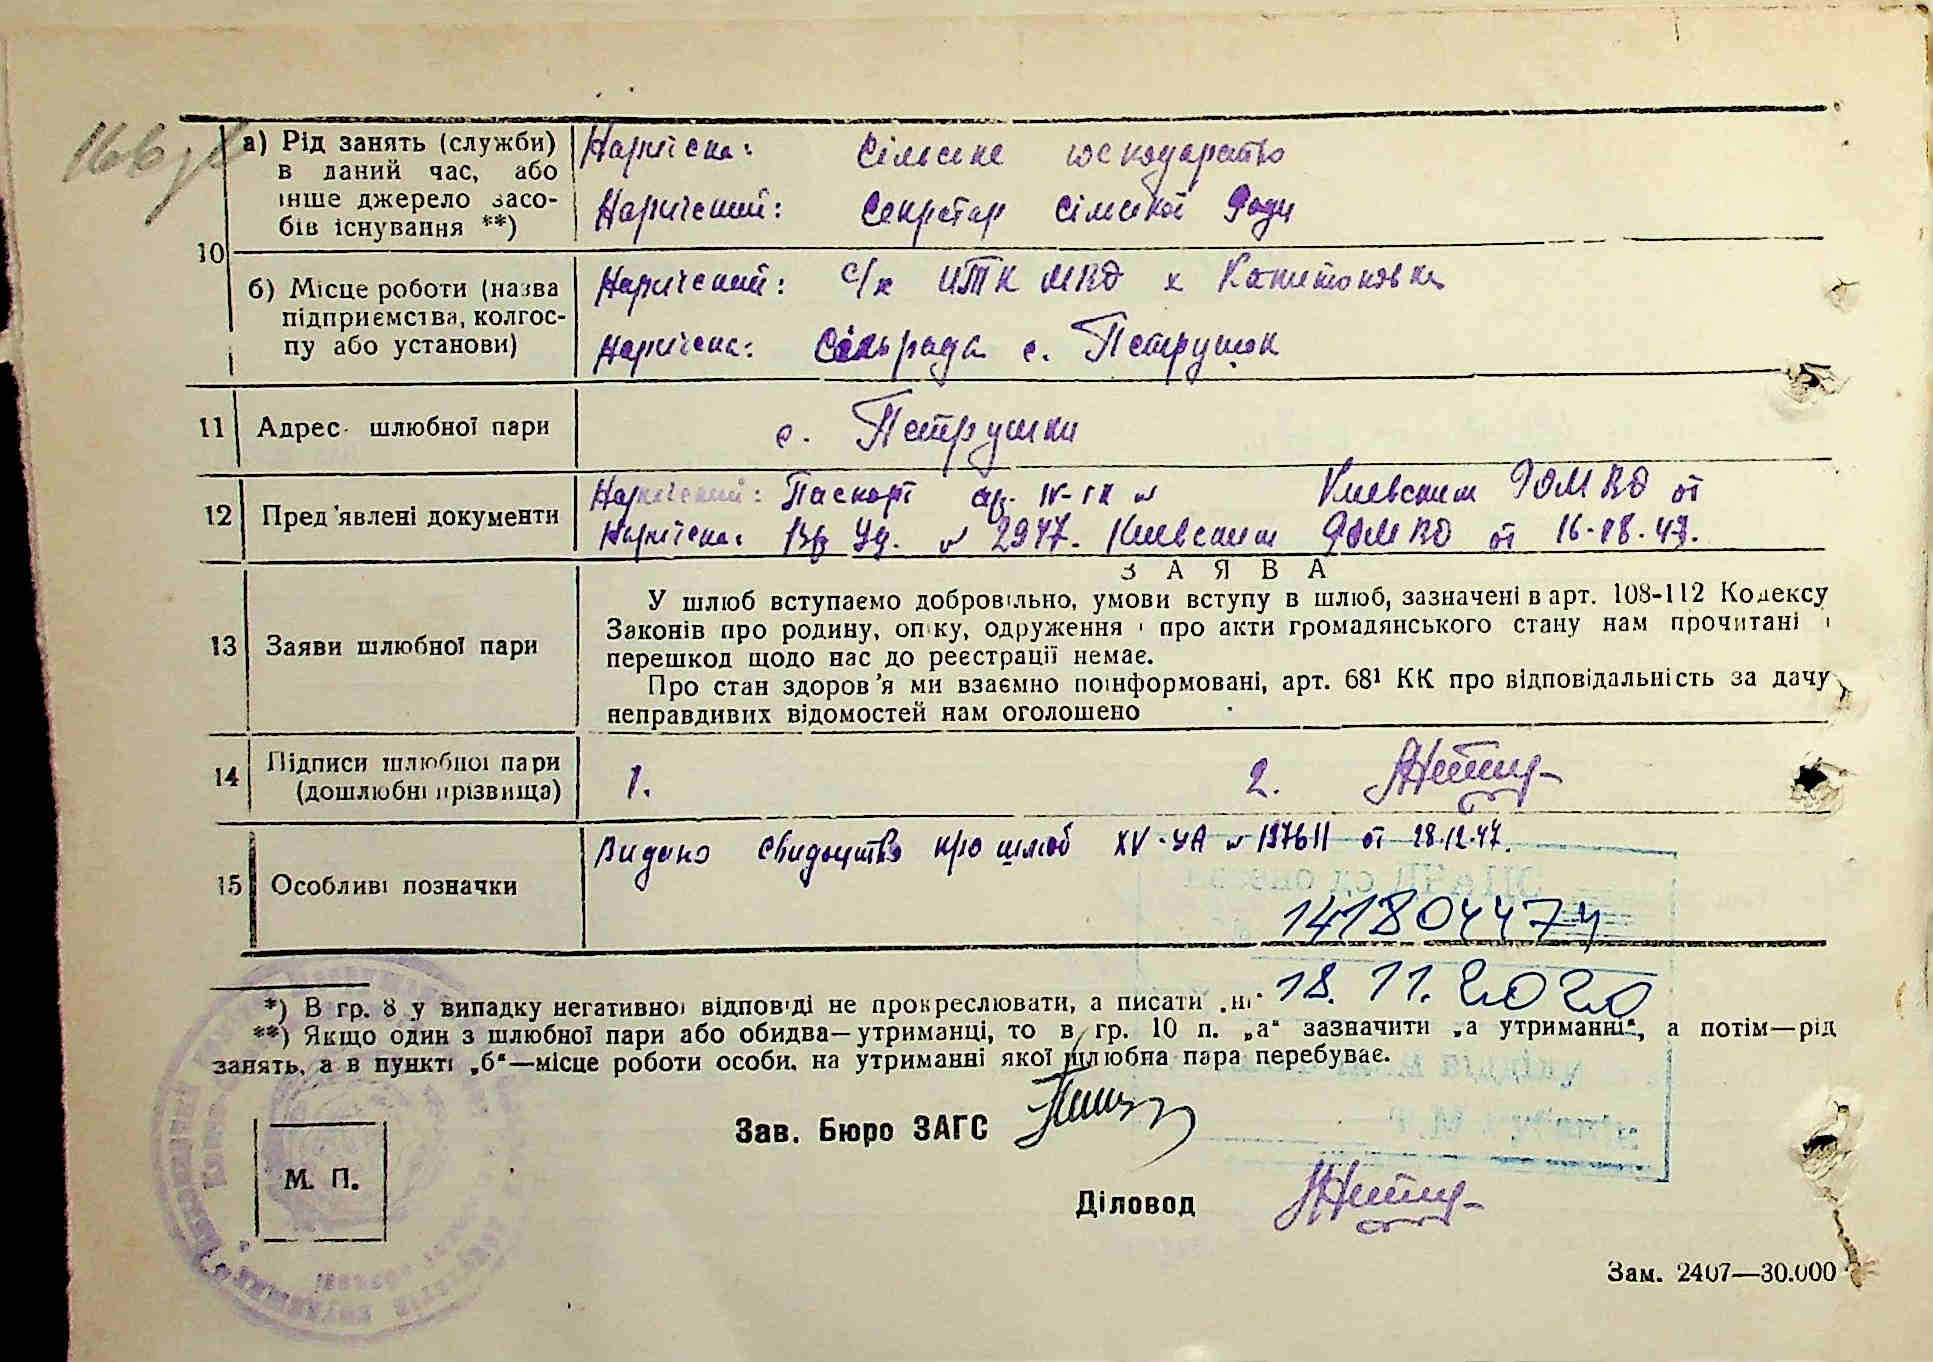 а) Рід занять (служби)
в даний час, або
інше джерело засо-
бів існування **)
Наречена: Сільське господарство
Наречений: Секретар сільської Ради
10
б) Місце роботи (назва
підприємства, колгос-
пу або установи)
Наречений: с/х ИТК МВД х Капитоновка
Наречена: Сільрада с. Петрушок
11 Адрес шлюбної пари
с. Петрушки
12 Пред'явлені документи
Наречений: Паспорт IV-ІК № Киевским РОМВД от
Наречена: Вр Уд. № 2947. Киевским РОМВД от
З А Я В А
13 Заяви шлюбної пари
У шлюб вступаємо добровільно, умови вступу в шлюб, зазначені в арт. 108-112 Кодексу
Законів про родину, опіку, одруження і про акти громадянського стану нам прочитані і
перешкод щодо нас до реєстрації немає.
Про стан здоров'я ми взаємно поінформовані, арт. 68¹ КК про відповідальність за дачу
неправдивих відомостей нам оголошено
14 Підписи шлюбної пари
(дошлюбні прізвища)
1. 2.
15 Особливі позначки
Видано свидоцтво про шлюб XV-УА № 197611 от 28.12.47.
141804474
18.11.2020
*) В гр. 8 у випадку негативної відповіді не прокреслювати, а писати „ні"
**) Якщо один з шлюбної пари або обидва—утриманці, то в гр. 10 п. „а" зазначити „а утриманні", а потім—рід
занять, а в пункті „б"—місце роботи особи, на утриманні якої шлюбна пара перебуває.
Зав. Бюро ЗАГС
М. П.
Діловод
Зам. 2407—30.000